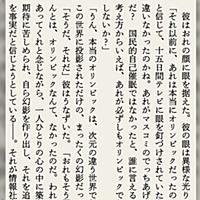 彼はおれの顔に眼を据えた。彼の眼は異様な光り
「それ以前に、あれは本当にオリンピックだったの
と信じて、十五日間テレビに眼を釘づけされていた
違いなかったのかね。あれがマスコミのでっちあげ
だ？　国民的自己催眠ではなかったと、誰に言える
考え方からいえば、あれが必ずしもオリンピックで
しないか？」
「うん、本当のオリンピックは、次元の違う世界で
この世界に投影されただけの、まったくの幻影だっ
「そうだ。それだ」彼はうなずいた。「おれもそう
んとは、オリンピックなんて、なかったのだ。われ
あってくれと念じながら、一人ひとりの心の中に築
期待に苦しみながら、自ら幻影を作り出し、それを追
を事実だと信じようとしている――。それが情報社